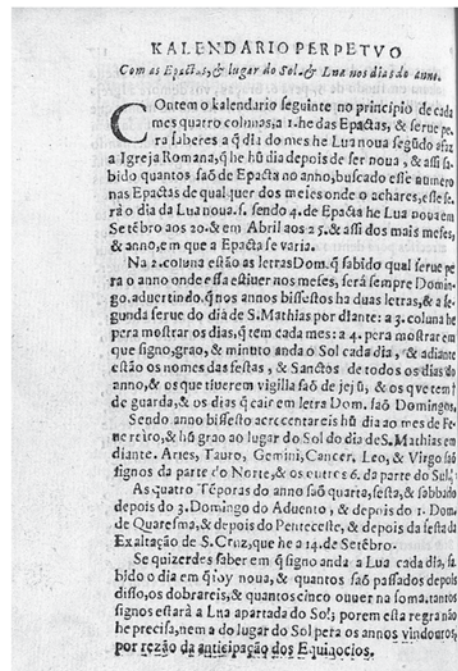 KALENDARIO PERPETVO
Com as Epactas, & lugar do Sol. & Lua nos dias do anno.
COntem o kalendario ſeguinte no principio de cada
mes quatro colunas, a 1. he das Epactas, & ſerue pe-
ra ſaberes a q̃ dia do mes he Lua noua ſegũdo a faz
a Igreja Romana, q̃ he hũ dia depois de ſer noua, & aſſi ſa-
bido quantos ſaõ de Epacta no anno, buſcado eſſe numero
nas Epactas de qualquer dos meſes onde o achares, eſſe ſe-
rà o dia da Lua noua. ſ. ſendo 4. de Epacta he Lua noua em
Setẽbro aos 20. & em Abril aos 25. & aſſi dos mais meſes,
& anno, em que a Epacta ſe varia.
Na 2. coluna eſtão as letras Dom. q̃ ſabido qual ſerue pe
ra o anno onde eſſa eſtiuer nos meſes, ſerá ſempre Domin-
go, aduertindo, q̃ nos annos biſſeſtos ha duas letras, & a ſe-
gunda ſerue do dia de S. Mathias por diante: a 3. coluna he
pera moſtrar os dias, q̃ tem cada mes: a 4. pera moſtrar em
que ſigno, grao, & minuto anda o Sol cada dia, & adiante
eſtão os nomes das feſtas, & Sanctos de todos os dias do
anno, & os que tiuerem vigilla ſaõ de jejũ, & os q̃ tem †
de guarda, & os dias q̃ cair em letra Dom. ſaõ Domingos.
Sendo anno biſſeſto acrecentareis hũ dia ao mes de Fe-
uereiro, & hũ grao ao lugar do Sol do dia de S. Mathias em
diante. Aries, Tauro, Gemini, Cancer, Leo, & Virgo ſaõ
ſignos da parte do Norte, & os outros 6. da parte do Sul.
As quatro Tẽporas do anno ſaõ quarta, ſeſta, & ſabbado
depois do 3. Domingo do Aduento, & depois do 1. Dom.
de Quareſma, & depois do Penteceſte, & depois da feſta da
Exaltação de S. Cruz, que he a 14. de Setẽbro.
Se quizerdes ſaber em q̃ ſigno anda a Lua cada dia, ſa
bido o dia em q̃ foy noua, & quantos ſaõ paſſados depois
diſſo, os dobrareis, & quantos cinco ouuer na ſoma, tantos
ſignos eſtará a Lua apartada do Sol; porem eſta regra não
he preciſa, nem a do lugar do Sol pera os annos vindouros,
por rezão da anticipação dos Equinocios.